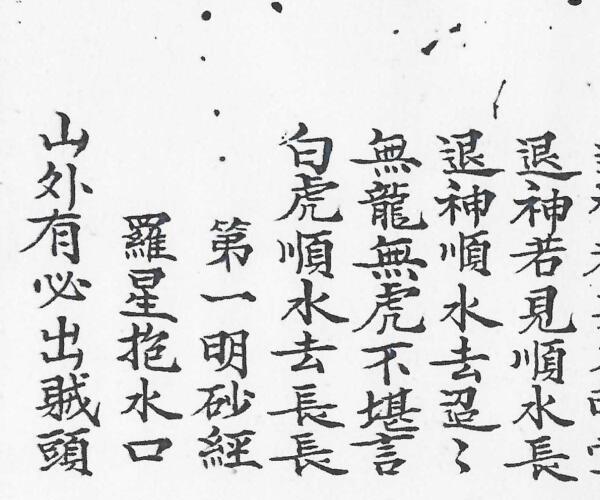 退神若見順水長
退神順水去迢〻
無龍無虎不堪言
白虎順水去長長
第一明砂經
羅星抱水口
山外有必出賊頭